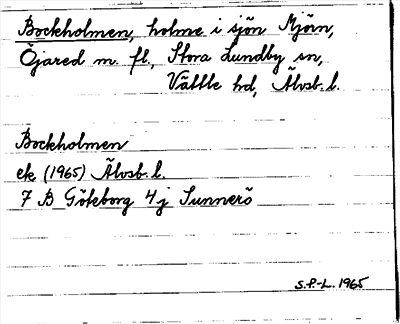 Bockholmen, holme i sjön Mjörn,
Öjared m. fl., Stora Lundby sn,
Vättle hd, Älvsb. l.
Bockholmen
ek. (1965) Älvsb. l.
7 B Göteborg 4j Sunnerö
S.P.-L. 1965